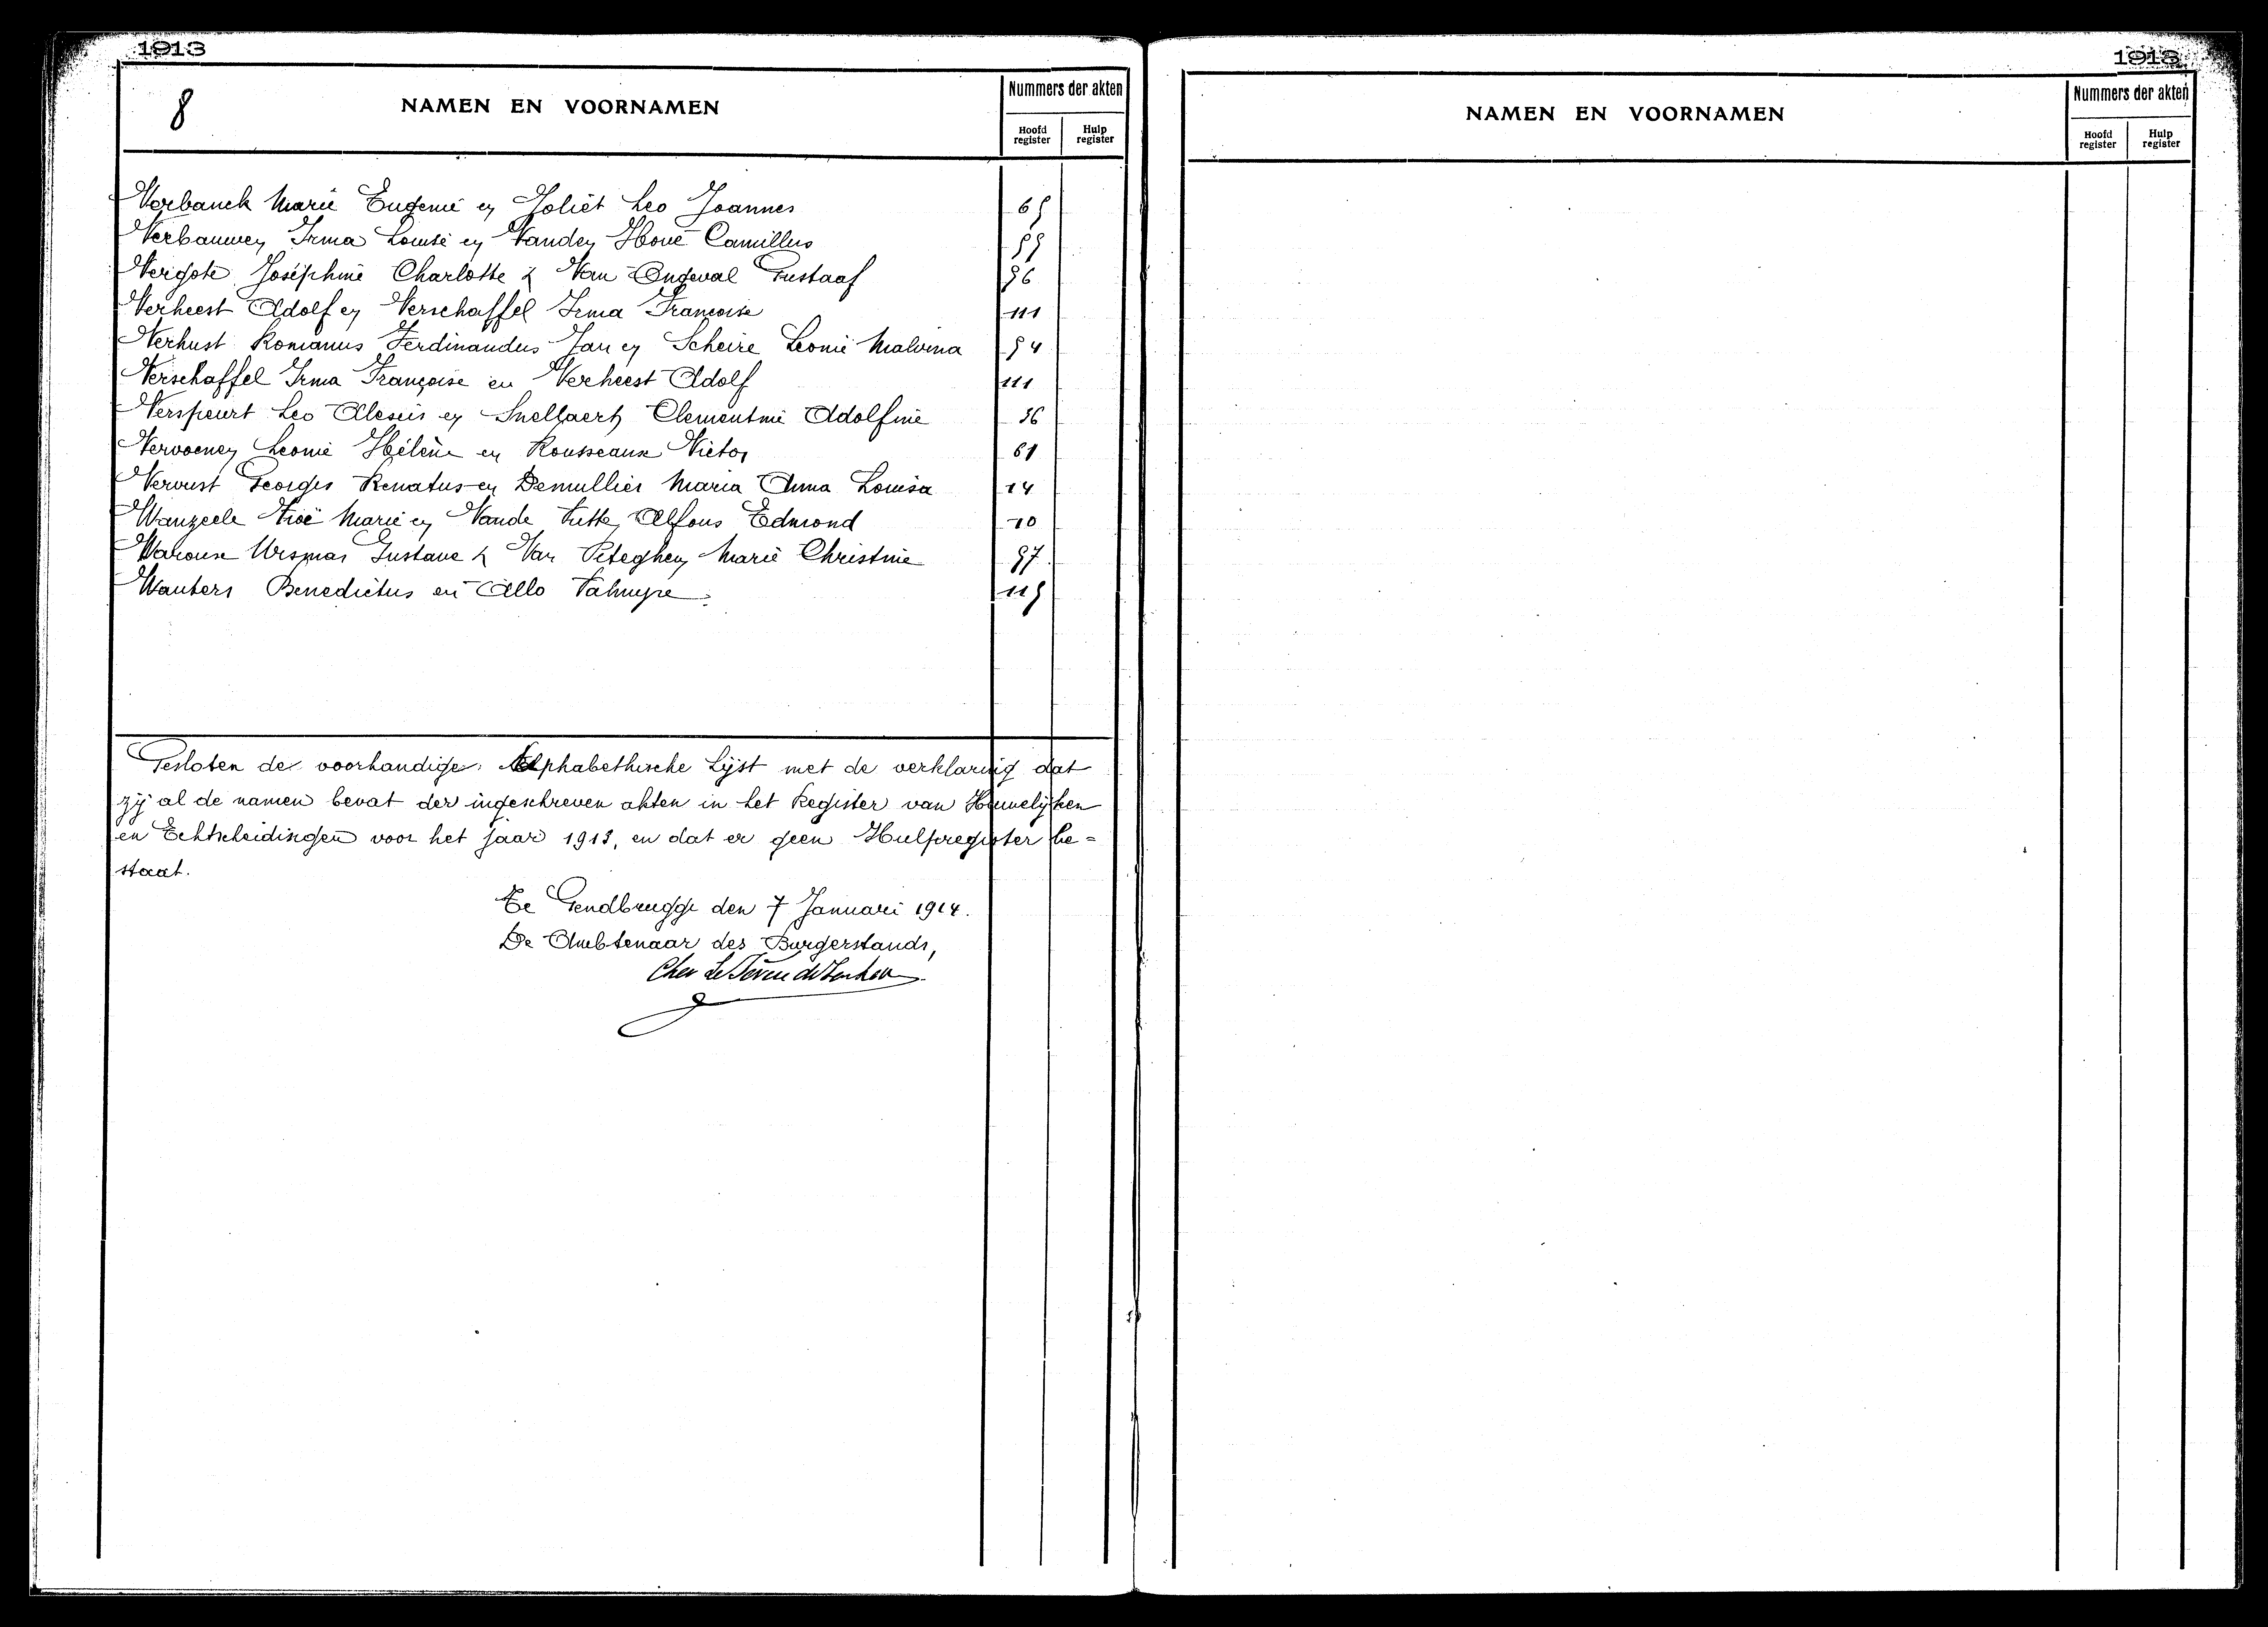 1913
8
NAMEN EN VOORNAMEN
Nummers der akten
Hoofd register
Hulp register
Verbanck Marie Eugenie en Joliet Leo Joannes 65
Verbauwen Irma Louise en Vanden Hove Camillus 55
Vergote Joséphine Charlotte & Van Ongeval Gustaaf 56
Verheest Adolf en Verschaffel Irma Françoise 111
Verhust Romanus Ferdinandus Jan en Scheire Leonie Malvina 54
Verschaffel Irma Françoise en Verheest Adolf 111
Verspeurt Leo Alexis en Snellaert Clementine Adolfine 36
Vervoenen Leonie Hélène en Rousseaux Victor 61
Vervust Georges Renatus en Demullier Maria Anna Louisa 14
Wanzeele Zoë Marie en Vande Putte Alfons Edmond 10
Waroux Ursmar Gustave & Van Peteghem Marie Christine 97
Wauters Benedictus en Allo Palmyre 115
Gesloten de voorhandige Alphabethische Lijst met de verklaring dat
zij al de namen bevat der ingeschreven akten in het Register van Huwelijken
en Echtscheidingen voor het jaar 1913, en dat er geen Hulpregister be=
staat.
Te Gendbrugge den 7 Januari 1914.
De Ambtenaar des Burgerstands,
1913
NAMEN EN VOORNAMEN
Nummers der akten
Hoofd register
Hulp register